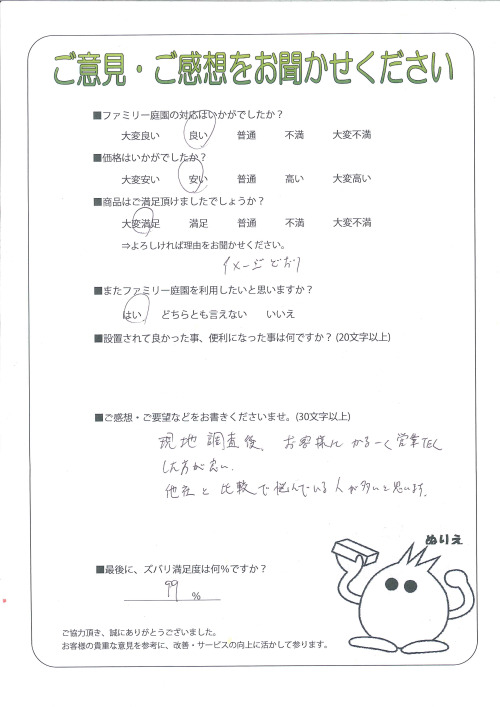 ご意見・ご感想をお聞かせください
■ファミリー庭園の対応はいかがでしたか？
大変良い　良い　普通　不満　大変不満
■価格はいかがでしたか？
大変安い　安い　普通　高い　大変高い
■商品はご満足頂けましたでしょうか？
大変満足　満足　普通　不満　大変不満
⇒よろしければ理由をお聞かせください。
イメージどおり
■またファミリー庭園を利用したいと思いますか？
はい　どちらとも言えない　いいえ
■設置されて良かった事、便利になった事は何ですか？(20文字以上)
■ご感想・ご要望などをお書きくださいませ。(30文字以上)
現地調査後、お客様に かるーく営業TEL
した方が良い。
他社と比較で悩んでいる人が多いと思います。
ぬりえ
■最後に、ズバリ満足度は何％ですか？
99 %
ご協力頂き、誠にありがとうございました。
お客様の貴重な意見を参考に、改善・サービスの向上に活かして参ります。